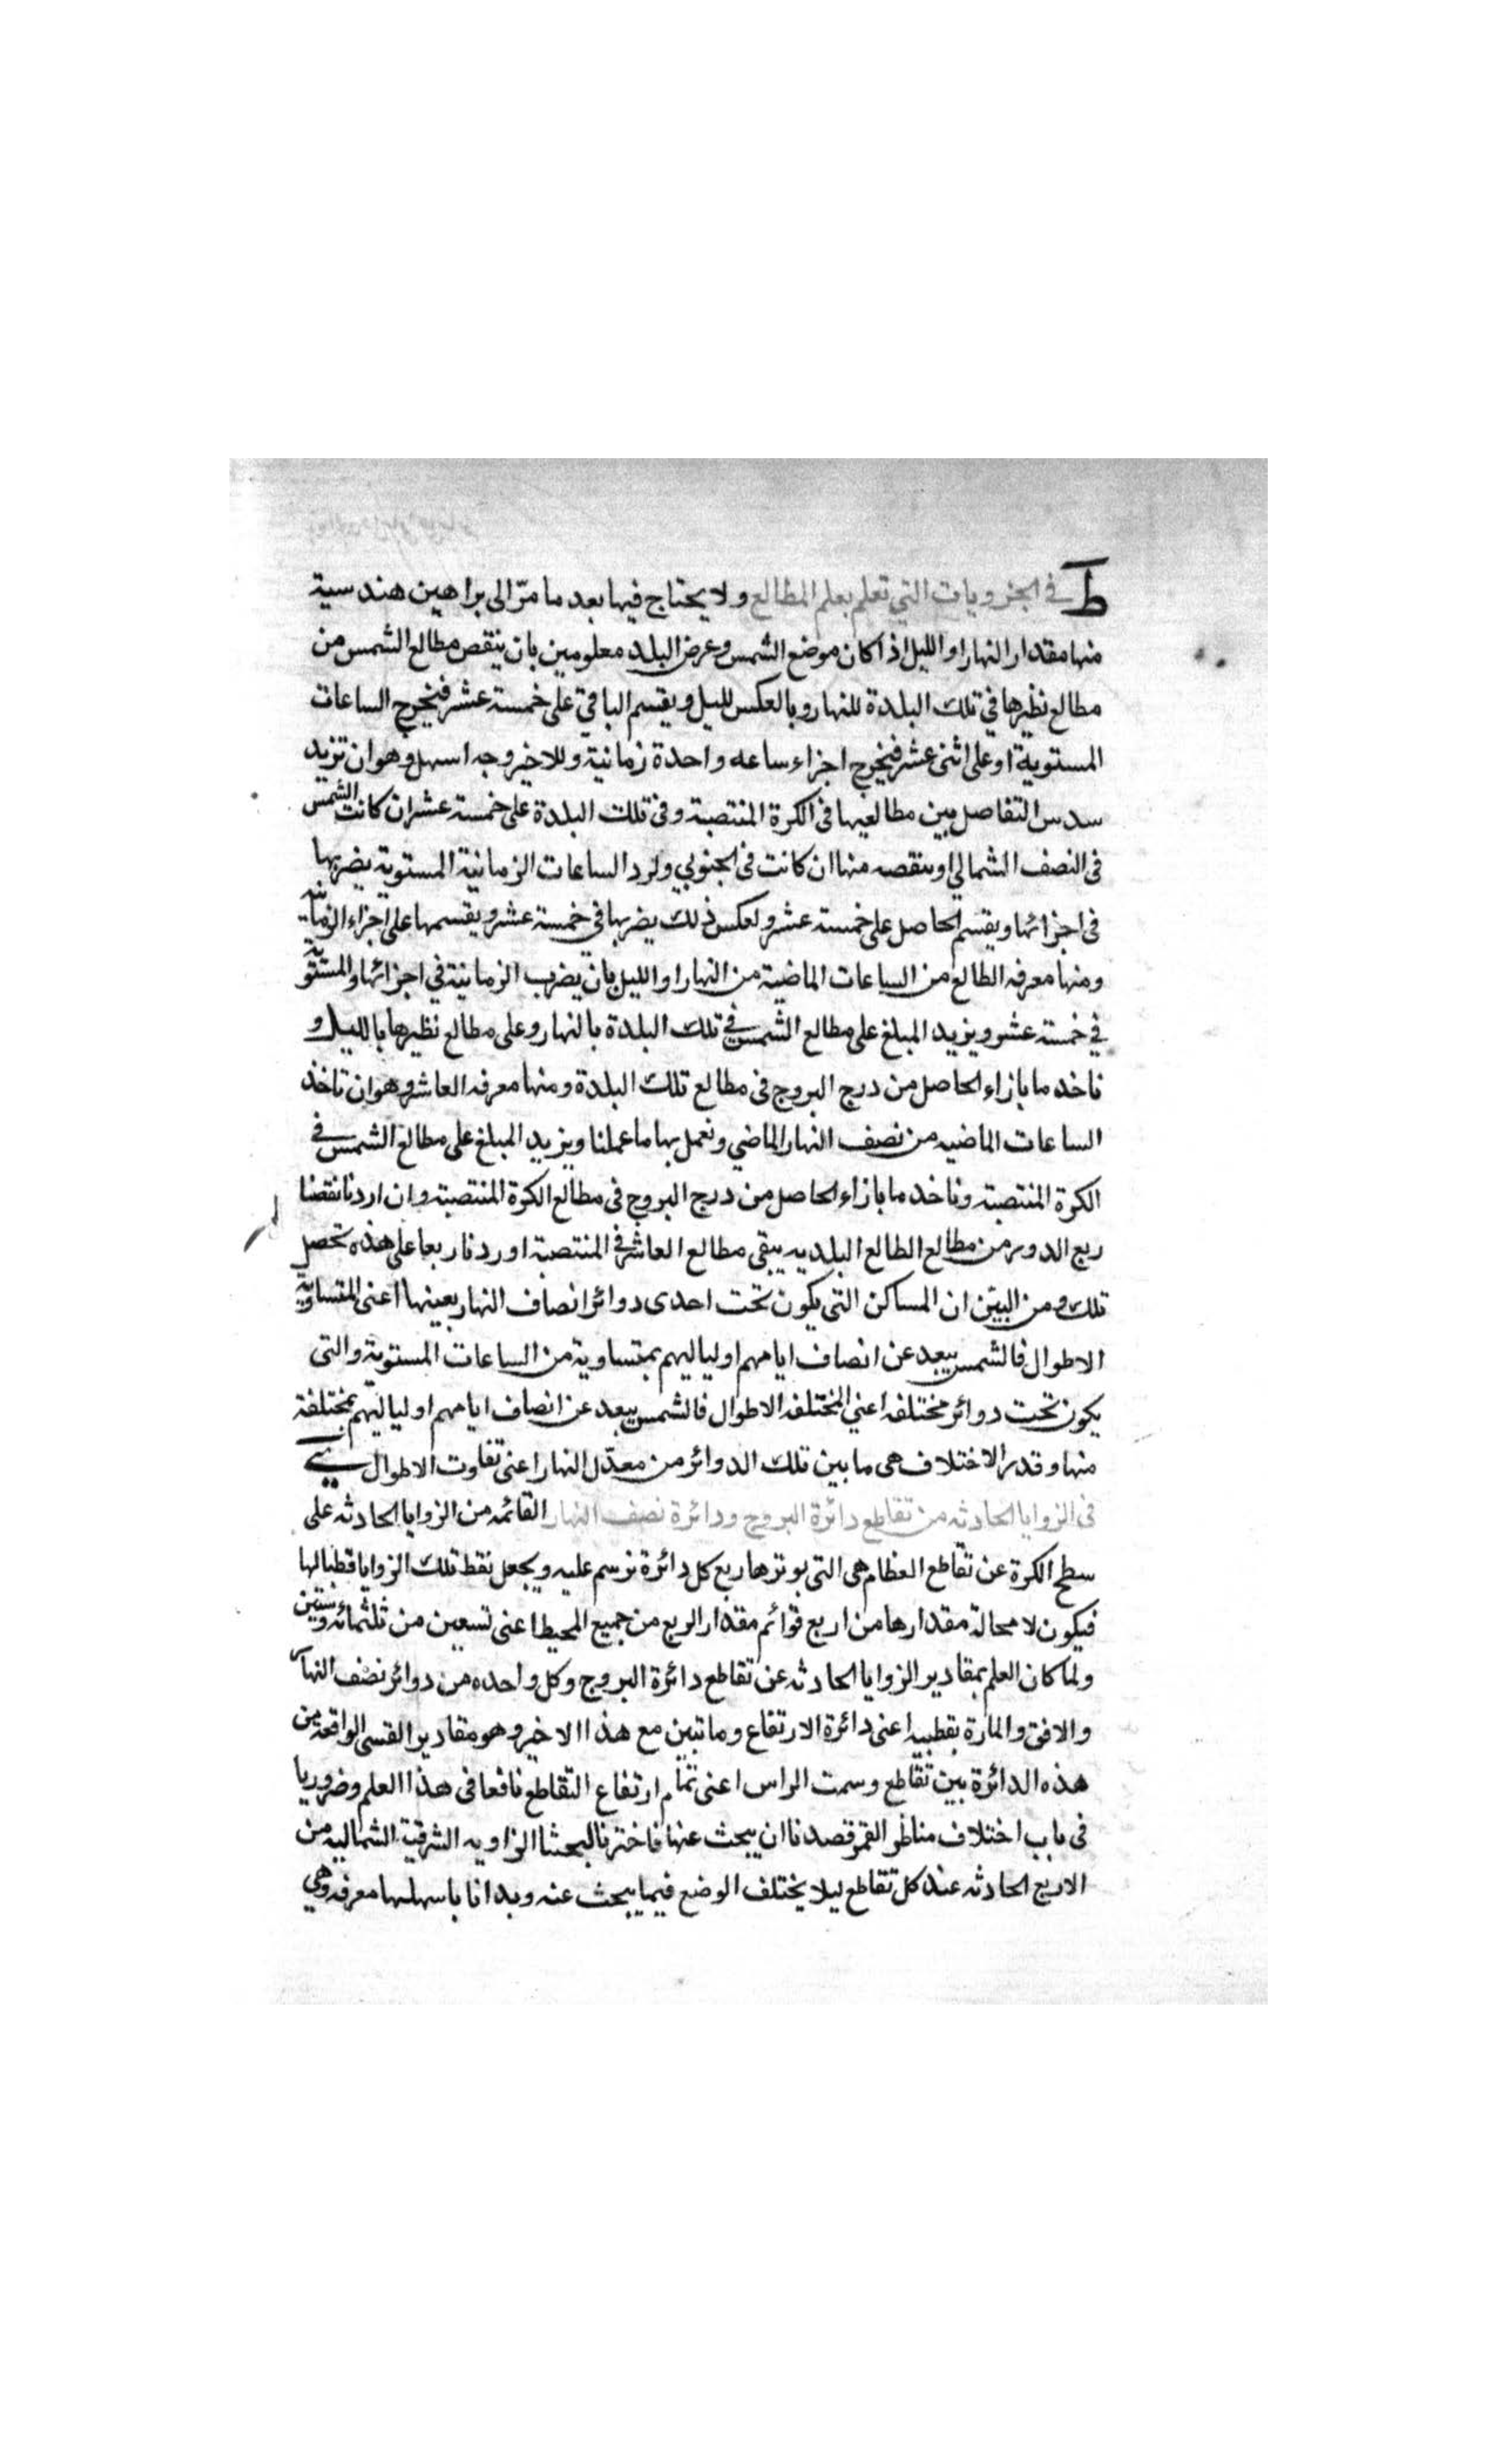 ط في الجزويات التي تعلم بعلم المطالع ولا يحتاج فيها بعد ما مرّ الى براهين هندسية
منها مقدار النهار او الليل اذا كان موضع الشمس وعرض البلد معلومين بان ينقص مطالع الشمس من
مطالع نظيرها في تلك البلدة للنهار وبالعكس لليل ويقسم الباقي على خمسة عشر فيخرج الساعات
المستوية او على اثنى عشر فيخرج اجزاء ساعه واحدة زمانية وللاخير وجه اسهل وهو ان تزيد
سدس التفاصل بين مطالعيها فى الكرة المنتصبة وفى تلك البلدة على خمسة عشر ان كانت الشمس
فى النصف الشمالي او ينقصه منها ان كانت فى الجنوبي ولرد الساعات الزمانية المستوية يضربها
فى اجزائها ويقسم الحاصل على خمسة عشر ولعكس ذلك يضربها في خمسة عشر ويقسمها على اجزاء الزمانية
ومنها معرفه الطالع من الساعات الماضية من النهار او الليل بان يضرب الزمانية في اجزائها والمستوية
في خمسة عشر ويزيد المبلغ على مطالع الشمس في تلك البلدة بالنهار وعلى مطالع نظيرها بالليل و
ناخد ما بازاء الحاصل من درج البروج فى مطالع تلك البلدة ومنها معرفه العاشر وهو ان تاخذ
الساعات الماضيه من نصف النهار الماضي ونعمل بها ما عملنا ويزيد المبلغ على مطالع الشمس في
الكرة المنتصبة وناخد ما بازاء الحاصل من درج البروج فى مطالع الكرة المنتصبة وان اردنا نقصنا
ربع الدور من مطالع الطالع البلديه يبقى مطالع العاشر في المنتصبة او ردنا ربعا على هذه تحصل
تلك ومن البيّن ان المساكن التى يكون تحت احدى دوائر انصاف النهار بعينها اعنى المتساوية
الاطوال فالشمس يبعد عن انصاف ايامهم او لياليهم بمتساوية من الساعات المستوية والتى
يكون تحت دوائر مختلفه اعني المختلفه الاطوال فالشمس يبعد عن انصاف ايامهم او لياليهم بمختلفة
منها وقدر الاختلاف هى ما بين تلك الدوائر من معدّل النهار اعنى تفاوت الاطوال ي
فى الزوايا الحادثه من تقاطع دائرة البروج ودائرة نصف النهار القائمه من الزوايا الحادثه على
سطح الكرة عن تقاطع العظام هى التى يوترها ربع كل دائرة نرسم عليه ويجعل نقط تلك الزوايا قطبا لها
فيكون لا محالة مقدارها من اربع قوائم مقدار الربع من جميع المحيط اعنى تسعين من ثلثمائه وستين
ولما كان العلم بمقادير الزوايا الحادثه عن تقاطع دائرة البروج وكل واحده من دوائر نصف النهار
والافق والمارة بقطبيه اعنى دائرة الارتفاع وما تبين مع هذا الاخير وهو مقادير القسى الواقعة من
هذه الدائرة بين تقاطع وسمت الراس اعنى تمام ارتفاع التقاطع نافعا فى هذا العلم وضروريا
فى باب اختلاف مناظر القمر قصدنا ان يبحث عنها فاخترنا لبحثنا الزاويه الشرقية الشماليه من
الاربع الحادثه عند كل تقاطع ليلا يختلف الوضع فيما يبحث عنه وبدانا باسهلها معرفه وهي